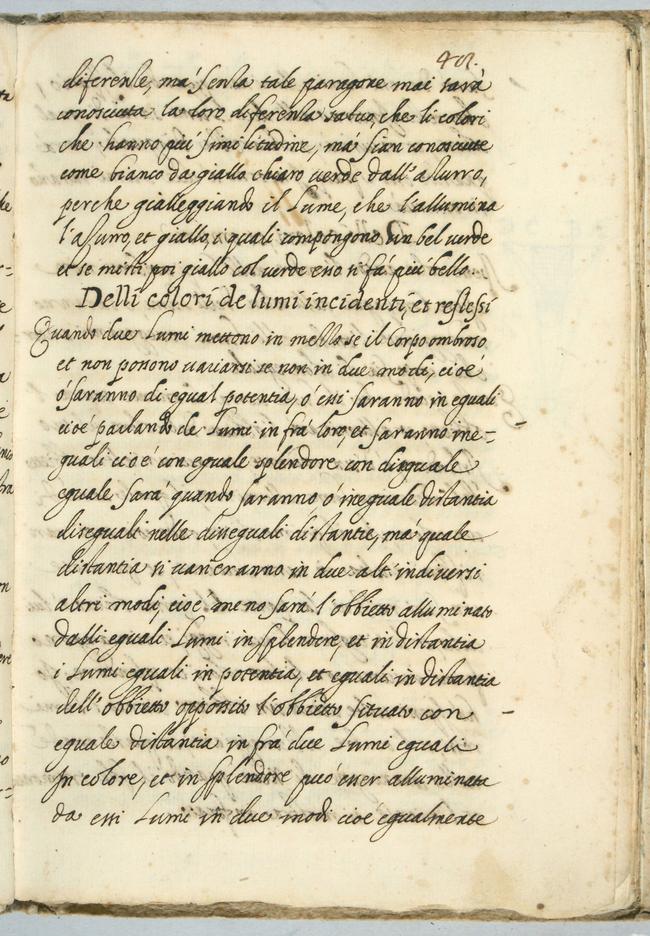 401.
diferente, má senza tale paragone mai sará
conosciuta la loro diferenza saluo, che li colori
che hanno piú similitudine, má sian conosciute
come bianco da giallo chiaro verde dall'azurro,
perche gialleggiando il Lume, che l'allumina
l'assurro, et giallo, i quali compongono un bel verde
et se misti poi giallo col verde esso si fá piú bello.
Delli colori de lumi incidenti, et reflessi
Quando due Lumi mettono in mezzo se il Corpo ombroso
et non possono variarsi se non in due modi, cioé
ó saranno di egual potentia, ó essi saranno ineguali
cioé parlando de Lumi infrá loro, et saranno ine=
guali cioé con eguale splendore con diseguale
eguale Sará quando saranno ó ineguale distantia
diseguali nelle disseguali distantie, má quale
distantia si varieranno in due alt' indiversi
altri modi, cioé meno sará l'obbietto alluminato
dalli eguali Lumi in splendore, et in distantia
i Lumi eguali in potentia, et eguali in distantia
dell'obbietto opposito l'obbietto situato con
eguale distantia infrá due Lumi eguali
In colore, et in splendore puó esser alluminata
da essi Lumi in due modi cioé egualmente